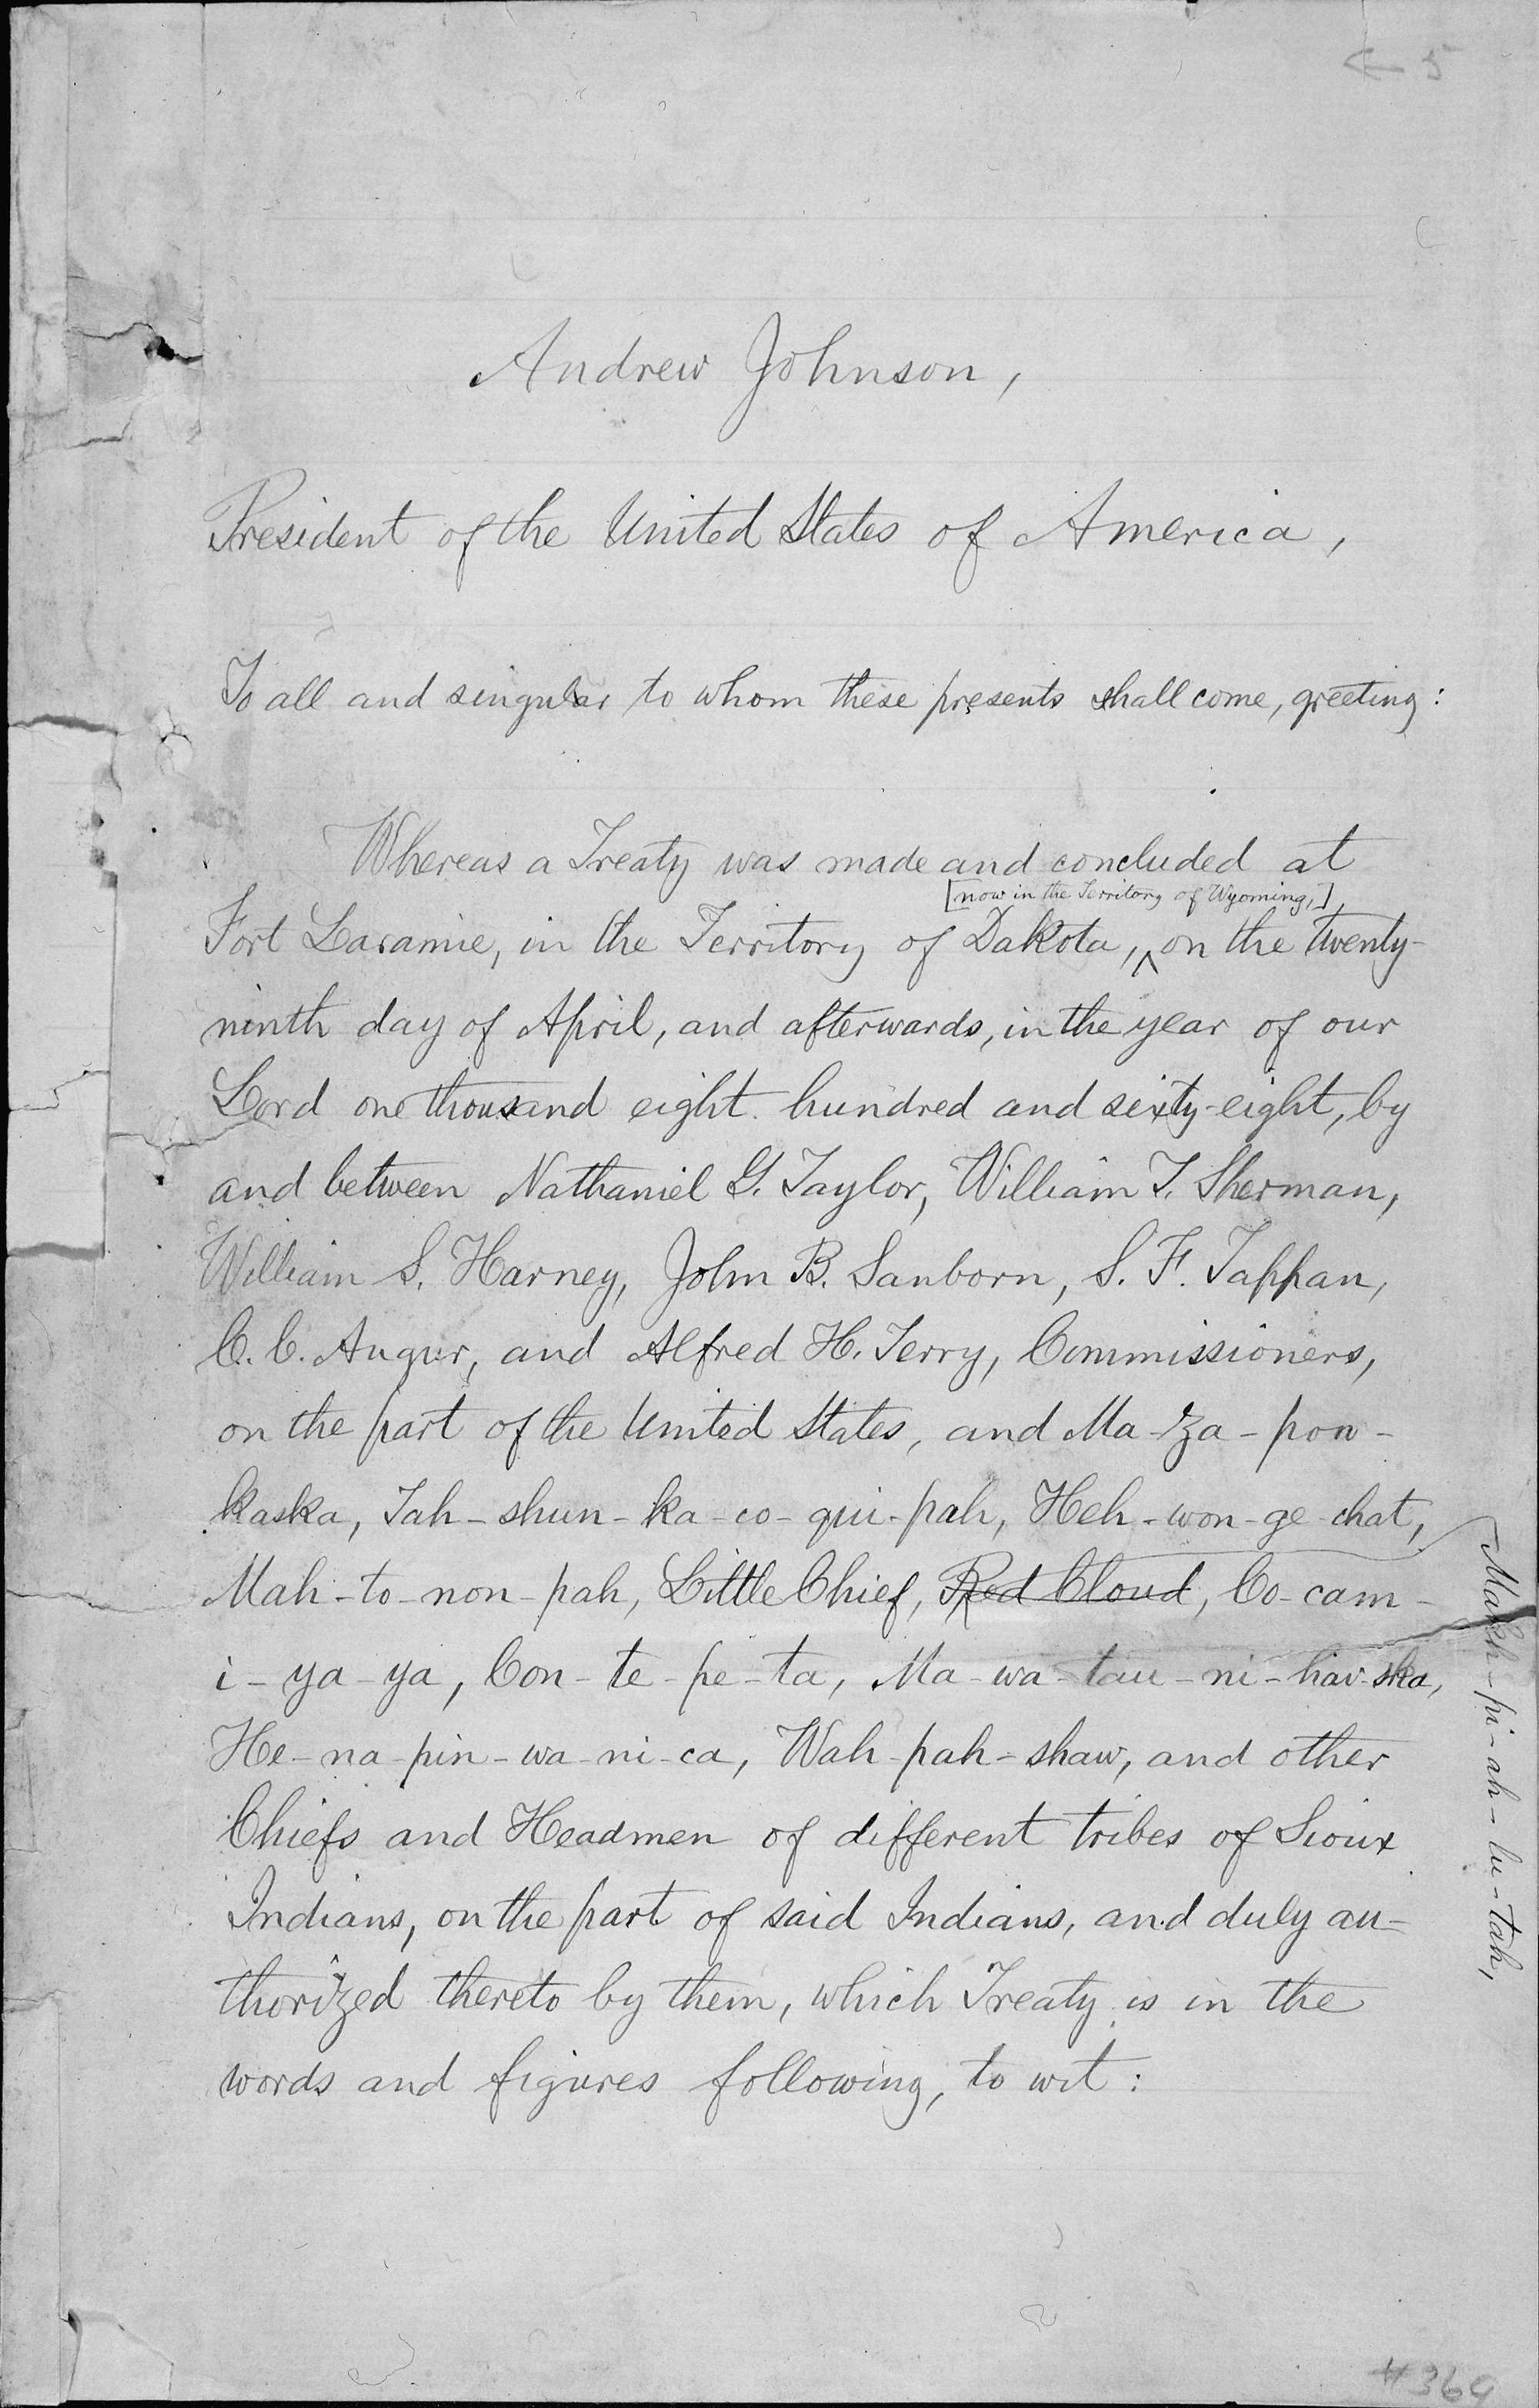 5
Andrew Johnson,
President of the United States of America,
To all and singular to whom these presents shall come, greeting:
Whereas a Treaty was made and concluded at
[now in the Territory of Wyoming,]
Fort Laramie, in the Territory of Dakota, ^ on the twenty-
ninth day of April, and afterwards, in the year of our
Lord one thousand eight hundred and sixty-eight, by
and between Nathaniel G. Taylor, William T. Sherman,
William S. Harney, John B. Sanborn, S. F. Tappan,
C. C. Augur, and Alfred H. Terry, Commissioners,
on the part of the United States, and Ma-za-pon-
kaska, Tah-shun-ka-co-qui-pah, Heh-won-ge-chat,
Mah-to-non-pah, Little Chief, Red Cloud, Co-cam-
i-ya-ya, Con-te-pe-ta, Ma-wa-tau-ni-hav-ska,
He-na-pin-wa-ni-ca, Wah-pah-shaw, and other
Chiefs and Headmen of different tribes of Sioux
Indians, on the part of said Indians, and duly au-
thorized thereto by them, which Treaty is in the
words and figures following, to wit:
Makh-pi-ah-lu-tah,